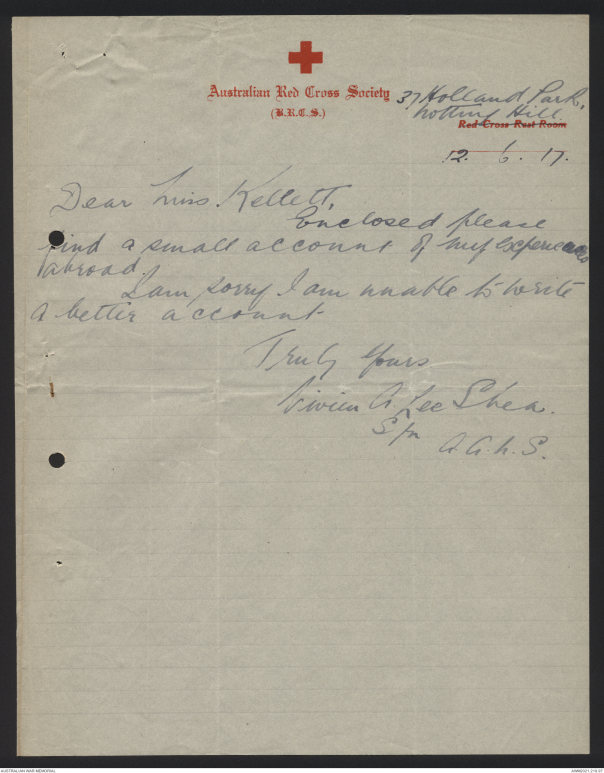 Australian Red Cross Society
(B.R.C.S.)
37 Holland Park,
Notting Hill
Red Cross Rest Room
12. 6. 17.
Dear Miss Kellett,
Enclosed please
find a small account of my experiences
abroad.
I am sorry I am unable to write
a better account
Truly Yours
Vivien A. Lee Shea.
S/n
A.A.N.S.
AUSTRALIAN WAR MEMORIAL